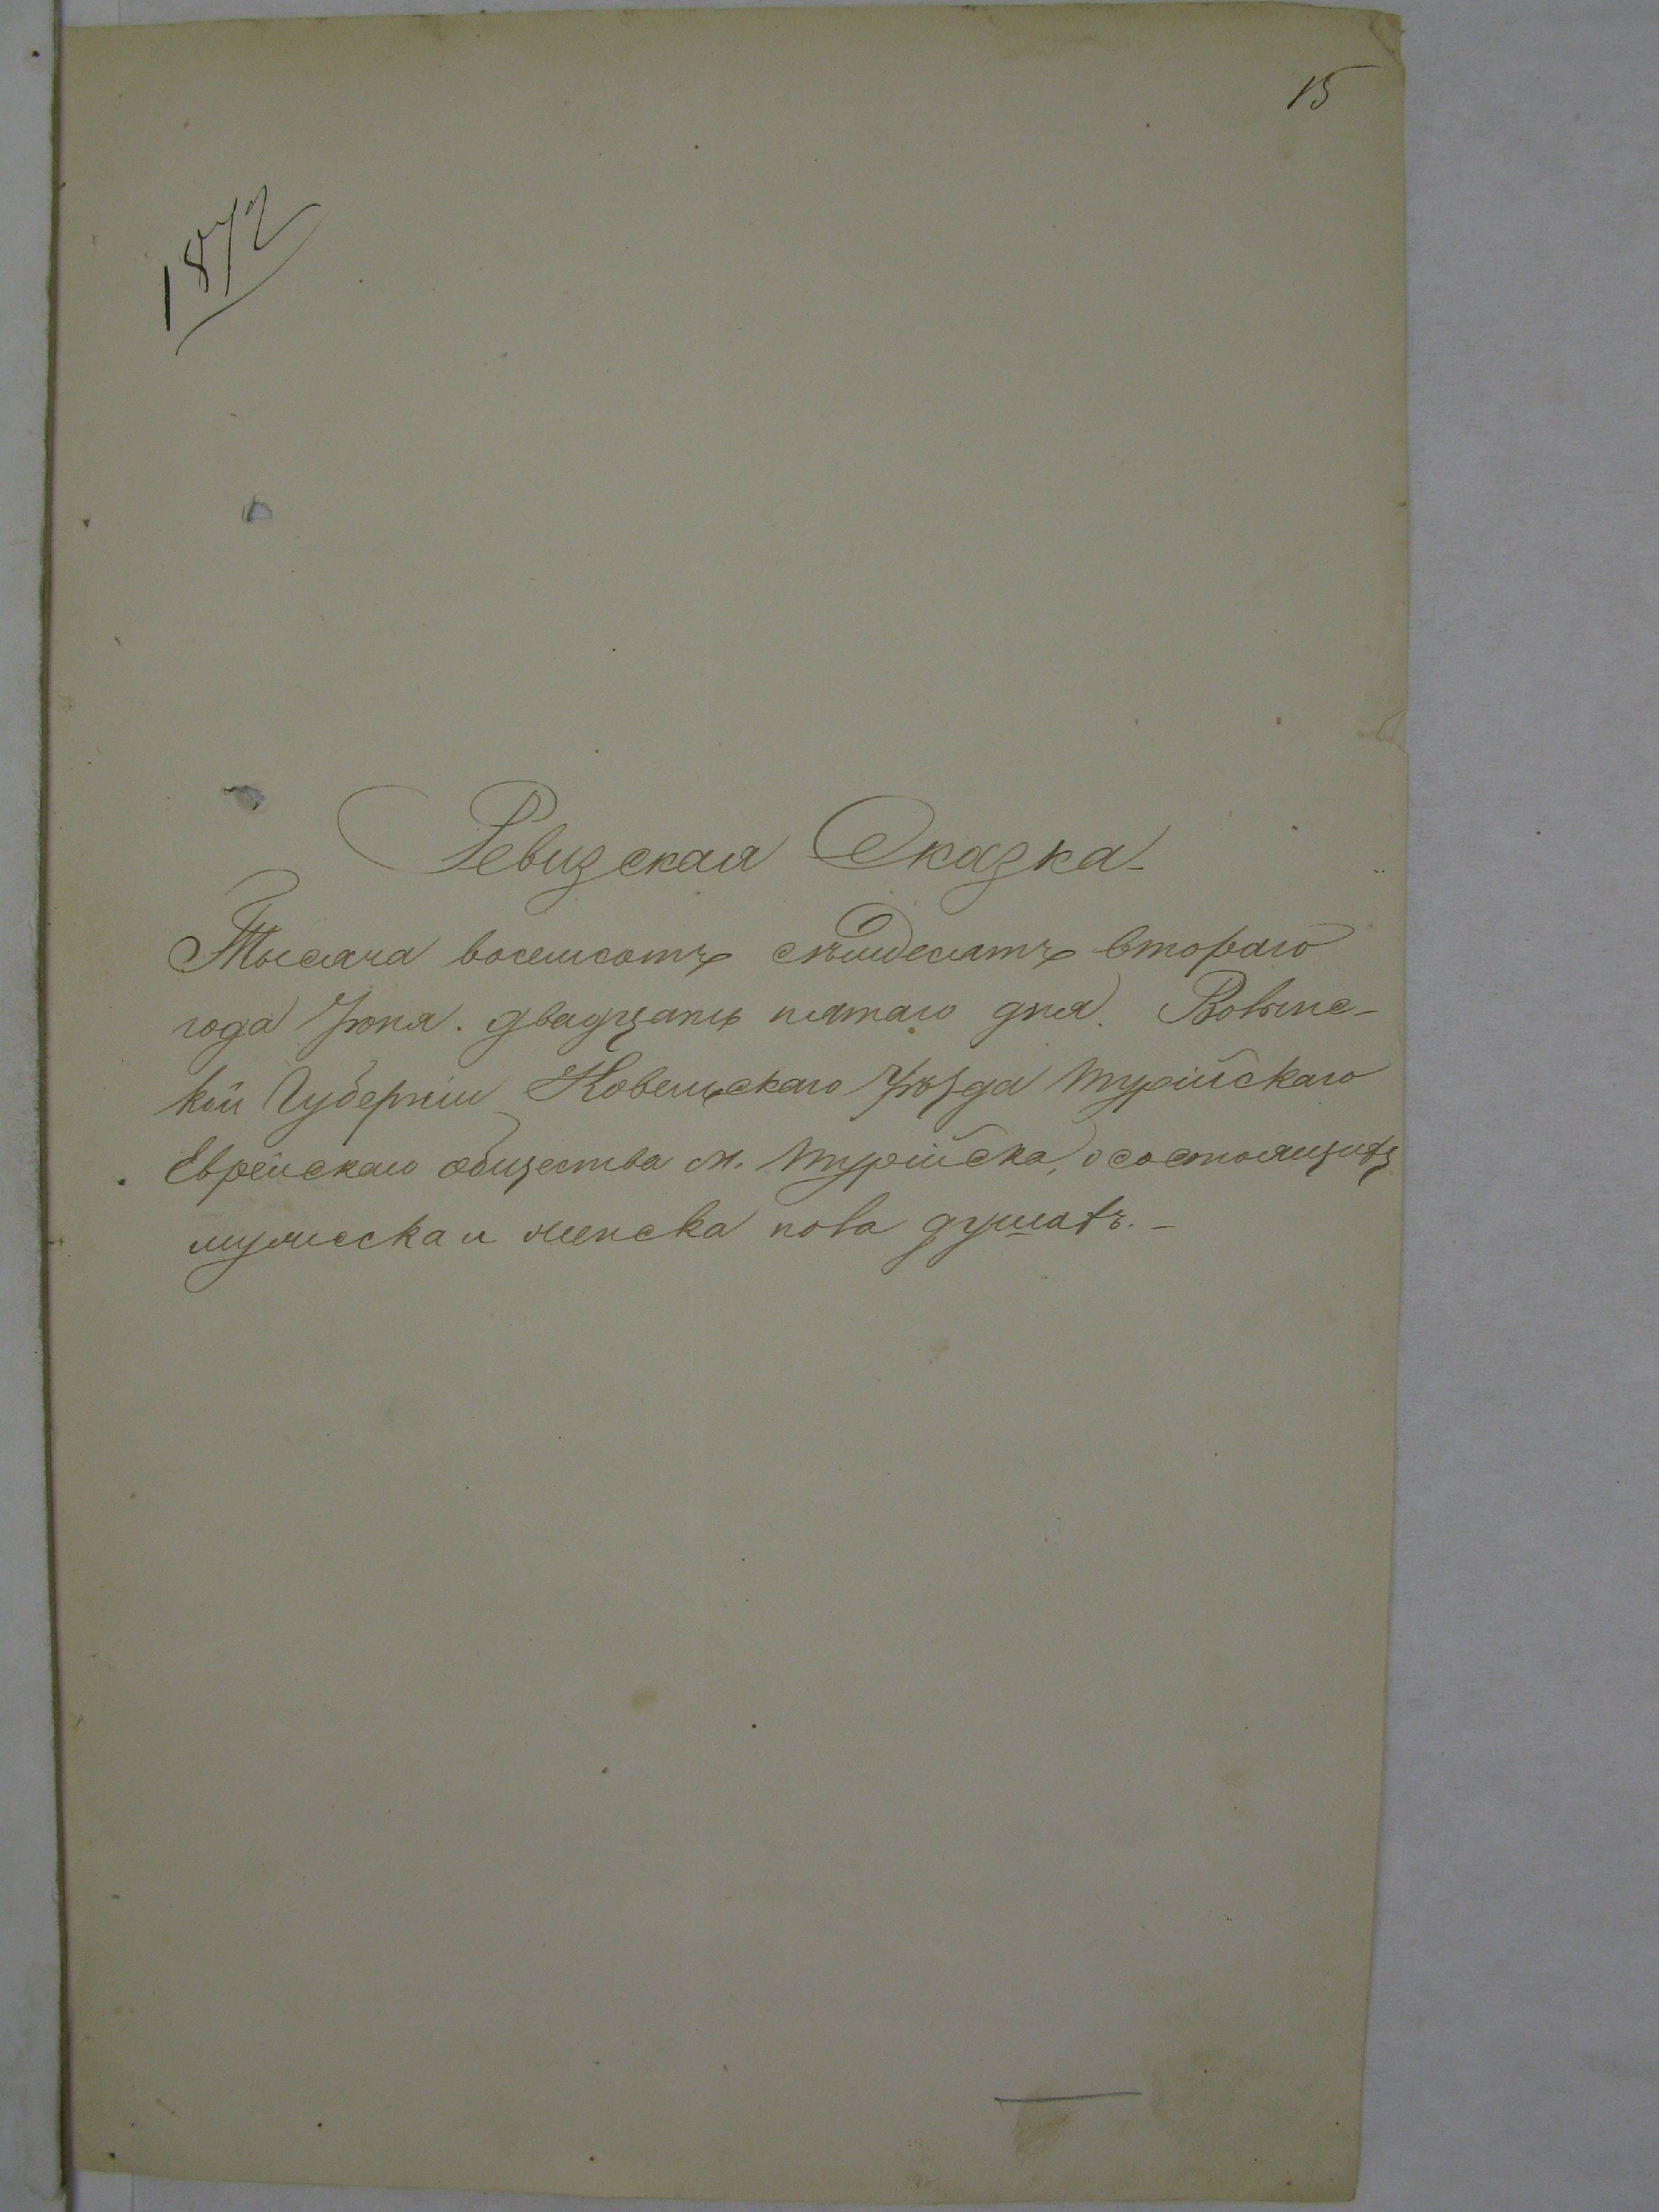 15
1872
Ревизская Сказка
Тысяча восемсотъ семидесятъ втораго
года Iюня. двадцать пятаго дня. Волынс-
кой Губернiи Ковельскаго Уѣзда Турiйскаго
Еврейскаго общества м. Турiйска, о состоящихъ
мужеска и женска пола душахъ. -